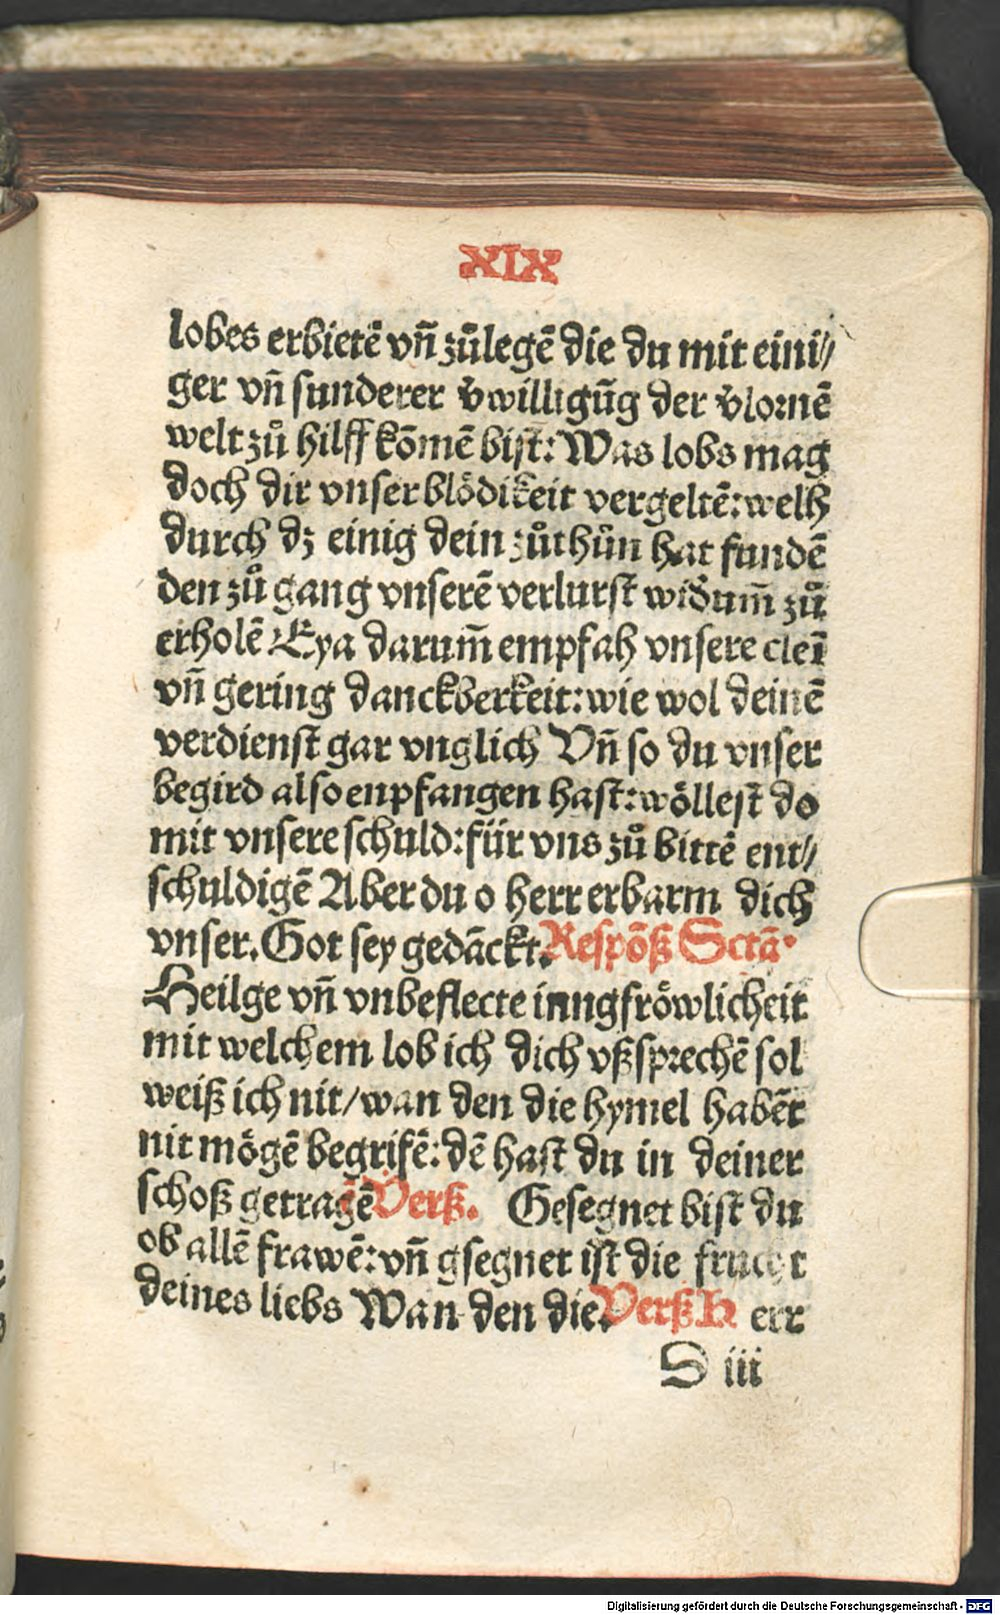 XIX
lobes erbietẽ vñ zůlegẽ die du mit eini⸗
ger vñ sunderer v̄willigūg der v̄lornẽ
welt zů hilff kōmē bist: Was lobs mag
doch dir vnser blödikeit vergeltē: welh
durch dz einig dein zůthůn hat fundē
den zů gang vnserē verlurst widum̄ zů
erholē Eya darum̄ empfah vnsere cleī
vñ gering danckberkeit: wie wol deinē
verdienst gar vnglich Vñ so du vnser
begird also enpfangen hast: wöllest do
mit vnsere schuld: für vns zů bittē ent⸗
schuldigē Aber du o herr erbarm dich
vnser. Got sey gedāckt. Respōß Sctā.
Heilge vñ vnbeflecte iungfröwlicheit
mit welchem lob ich dich vßsprechē sol
weiß ich nit / wan den die hymel habēt
nit mögē begrifē: dē hast du in deiner
schoß getragē Verß. Gesegnet bist du
ob allē frawē: vñ gsegnet ist die frucht
deines liebs Wan den die. Verß Herr
S iii
Digitalisierung gefördert durch die Deutsche Forschungsgemeinschaft - DFG